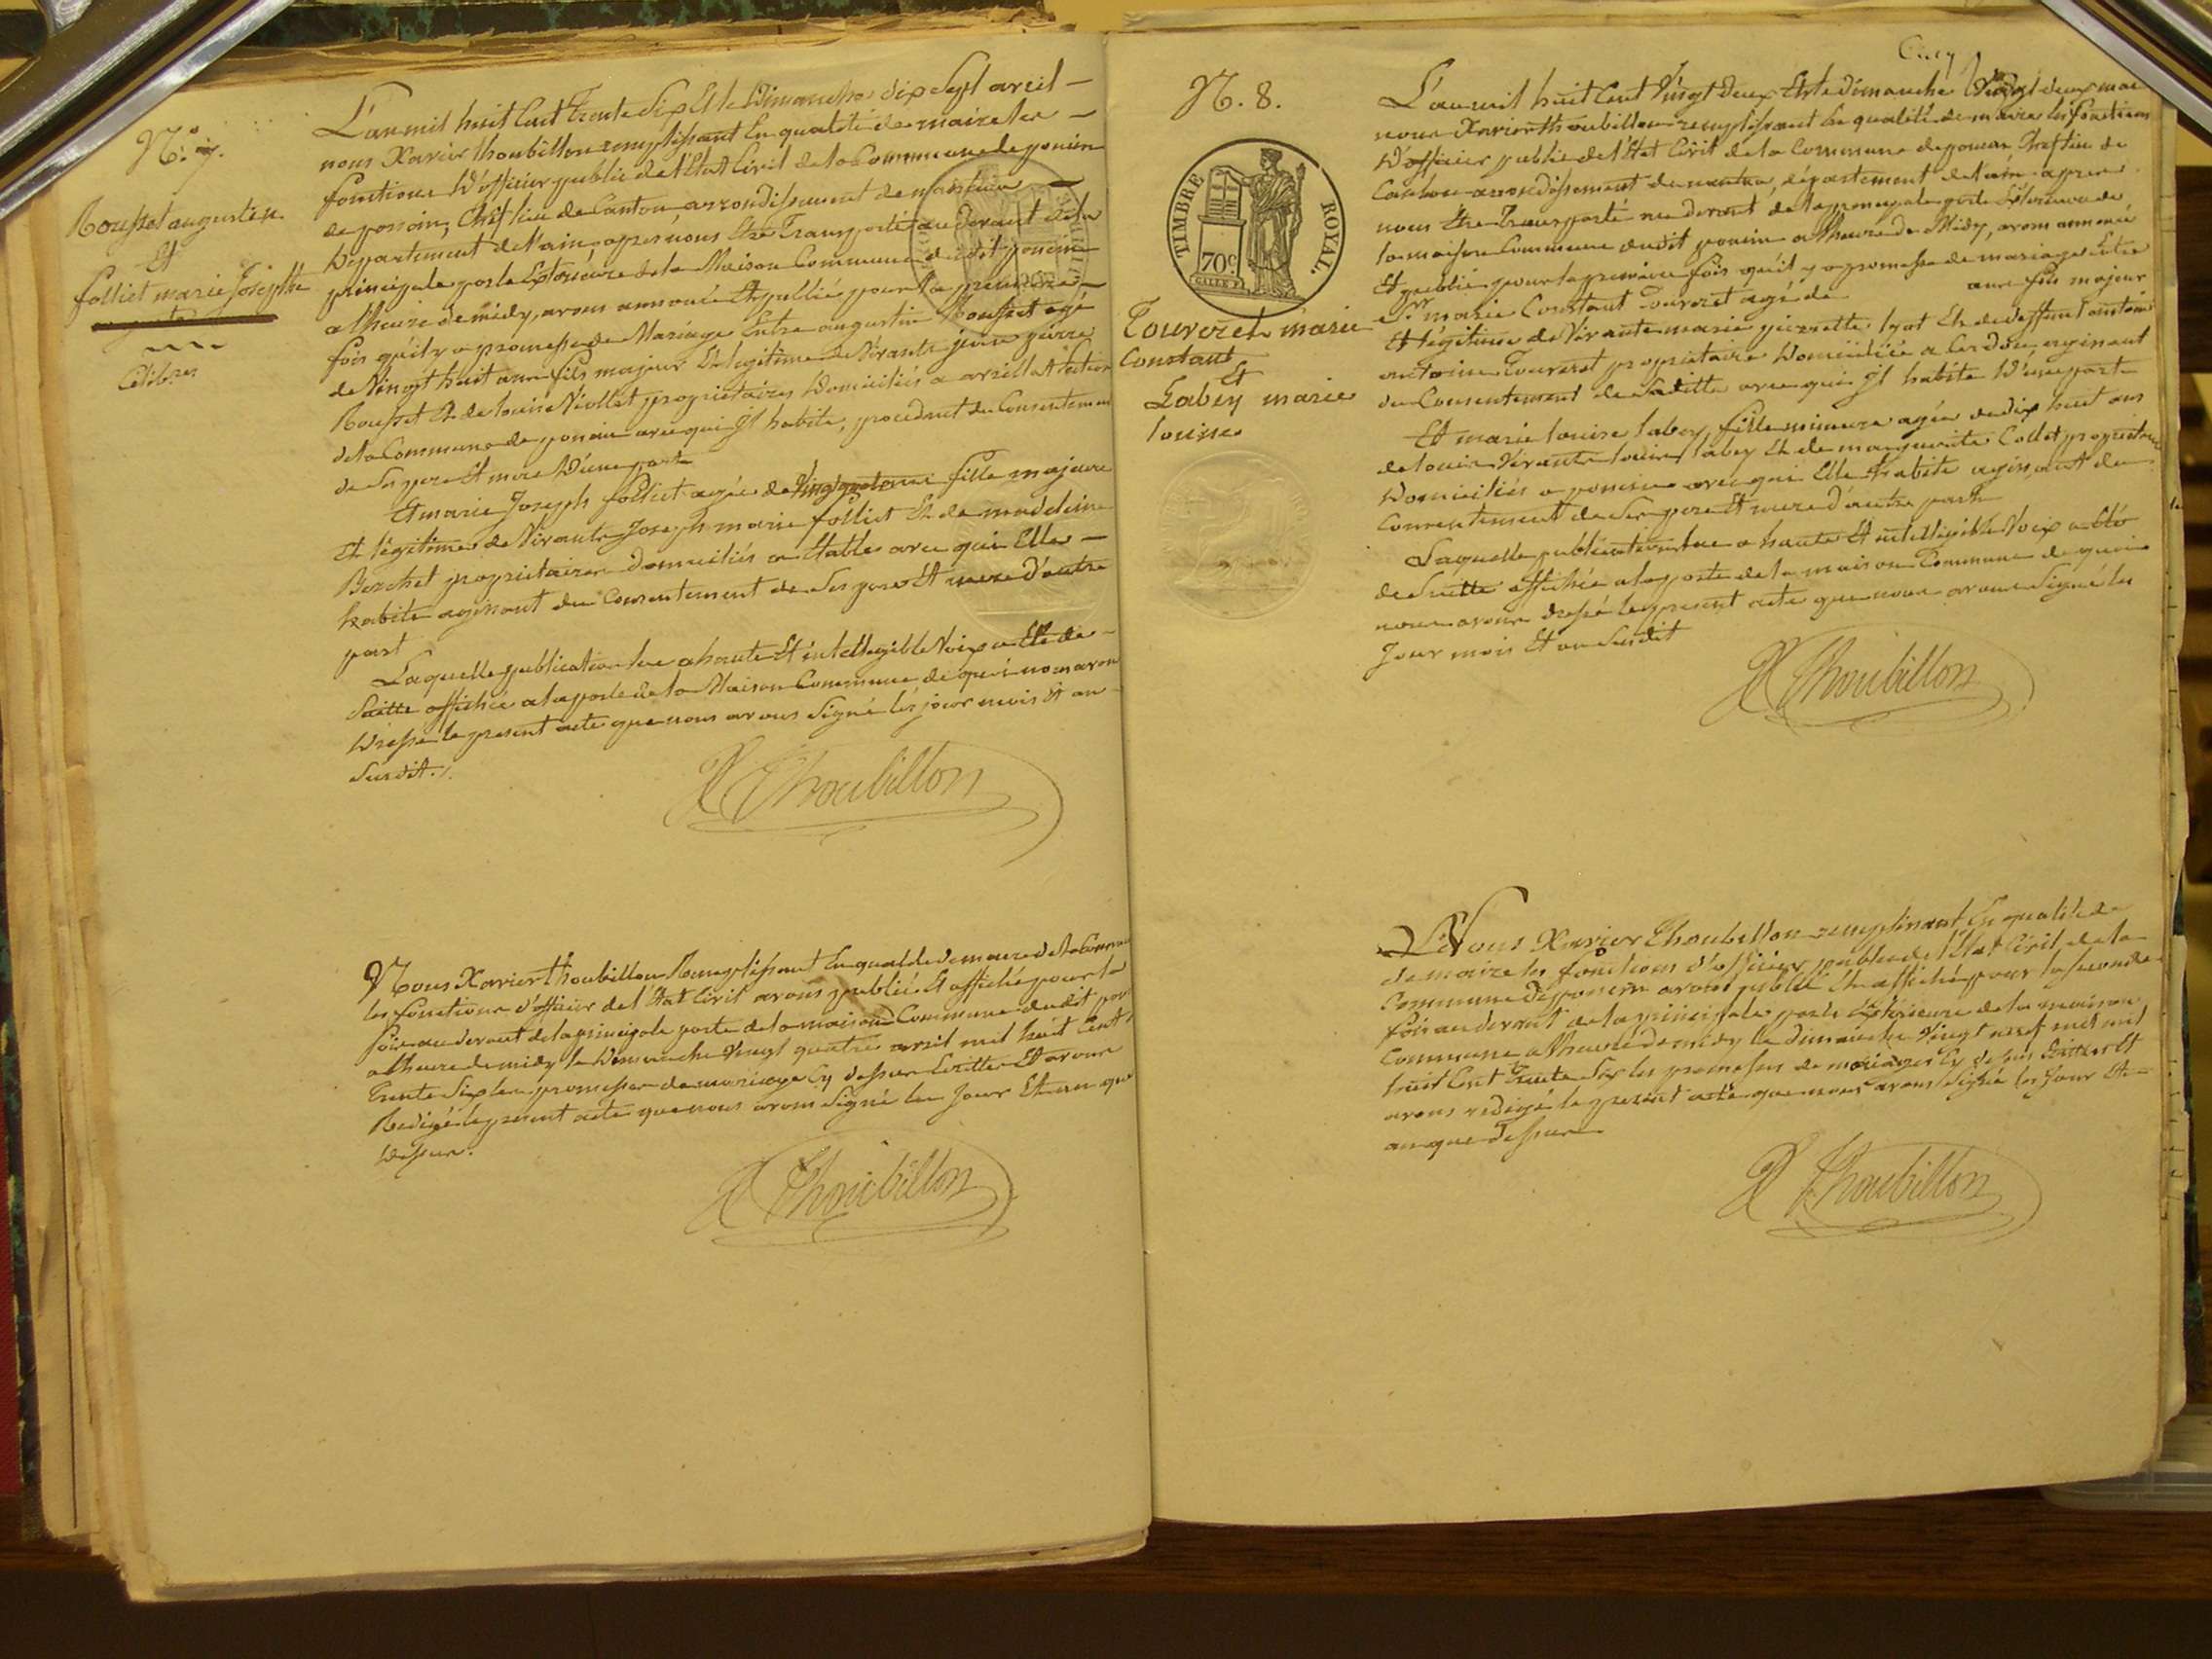 N.º 7.
Rousset augustin
Et
folliet marie Josephte
Célibres
L'an mil huit Cent Trente Six Et le Dimanche dix Sept avril
nous Xavier Thoubillon remplissant En qualité de maire les
fonctions D'officier public de l'Etat Civil de la Commune de poncin
de poncin, Chef lieu de Canton arrondissement de nantua
Département de l'ain, apres nous Etre Transporté au devant de la
principale porte Exterieure de la Maison Commune dudit poncin
a l'heure de midy, avons annoncé Et publié pour la premiere
fois qu'il y a promesse de Mariage Entre augustin Rousset agé
de Vingt huit ans fils majeur Et legitime de Vivants pierre
Rousset Et de louise Niollet propriétaires Domiciliés a
de la Commune de poncin avec qui Il habite, procedant du Consentement
de Ses pere Et mere D'une part
Et marie Joseph folliet agée de fille majeure
Et légitime de Vivants Joseph marie folliet Et de madeleine
Berchet propriétaires Domiciliés a Etables avec qui Elle
habite agissant du Consentement de Ses pere Et mere d'autre
part
Laquelle publication lue a haute Et intelligible Voix a Eté de
Suitte affichée a la porte de la Maison Commune de quoi nous avons
Dressé le present acte que nous avons Signé les jour mois Et an
Susdit.
X Thoubillon
Nous Xavier Thoubillon Remplissant En qualité de maire de la Commune
les fonctions d'officier de l'Etat Civil avons publié Et affiché pour la
fois au devant de la principale porte de la maison Commune dudit
a l'heure de midy le Dimanche Vingt quatre avril mil huit Cent
Trente Six les promesses de mariage Cy dessus Ecritte Et avons
Redigé le present acte que nous avons Signé les Jour Et an que
Dessus.
X Thoubillon
N. 8.
TIMBRE ROYAL.
70c
Touvret marie
Constant
Et
Labey marie
louise
L'an mil huit Cent Vingt deux Et le dimanche Vingt deux mai
nous Xavier Thoubillon remplissant En qualité de maire les fonctions
D'officier public de l'Etat Civil de la Commune de poncin Chef lieu de
Canton arrondissement de nantua, département de l'ain apres
nous Etre Transporté au devant de la principale porte Exterieure de
la maison Commune dudit poncin a l'heure de Midy, avons annoncé
Et publié pour la premiere fois qu'il y a promesse de mariage Entre
Sr marie Constant Touvret agé de ans fils majeur
Et légitime de Vivante marie pierrette Et de deffunt antoine
antoine Touvret propriétaire Domiciliée a Cerdon agissant
du Consentement de Saditte avec qui Il habite D'une part
Et marie louise labey, fille mineure agée de dix huit ans
de louis Vivants louis labey Et de marguerite Collet propriétaires
Domiciliés a poncin avec qui Elle habite agissant du
Consentement de Ses pere Et mere d'autre part
Laquelle publication lue a haute Et intelligible Voix a Eté
de Suitte affichée a la porte de la maison Commune de quoi
nous avons dressé le present acte que nous avons Signé les
Jour mois Et an Susdit
X Thoubillon
Nous Xavier Thoubillon remplissant En qualité de
de maire les fonctions d'officier public de l'Etat Civil de la
Commune de poncin avons publié Et affiché pour la seconde
fois au devant de la principale porte Extérieure de la maison
Commune a l'heure de midy le dimanche Vingt neuf mai mil
huit Cent Trente Six les promesses de mariages Cy dessus Et
avons redigé le present acte que nous avons Signé les Jour Et
an que dessus
X Thoubillon